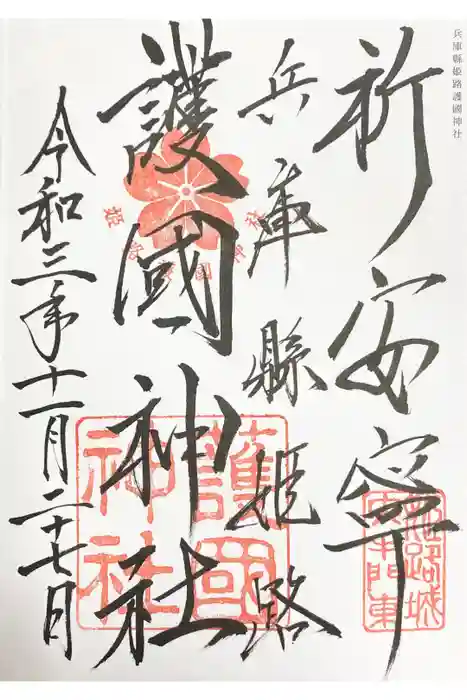 兵庫縣姫路護國神社
祈安寧
兵庫縣姫路
護國神社
令和三年十一月二十七日
護國
神社
姫路城
東